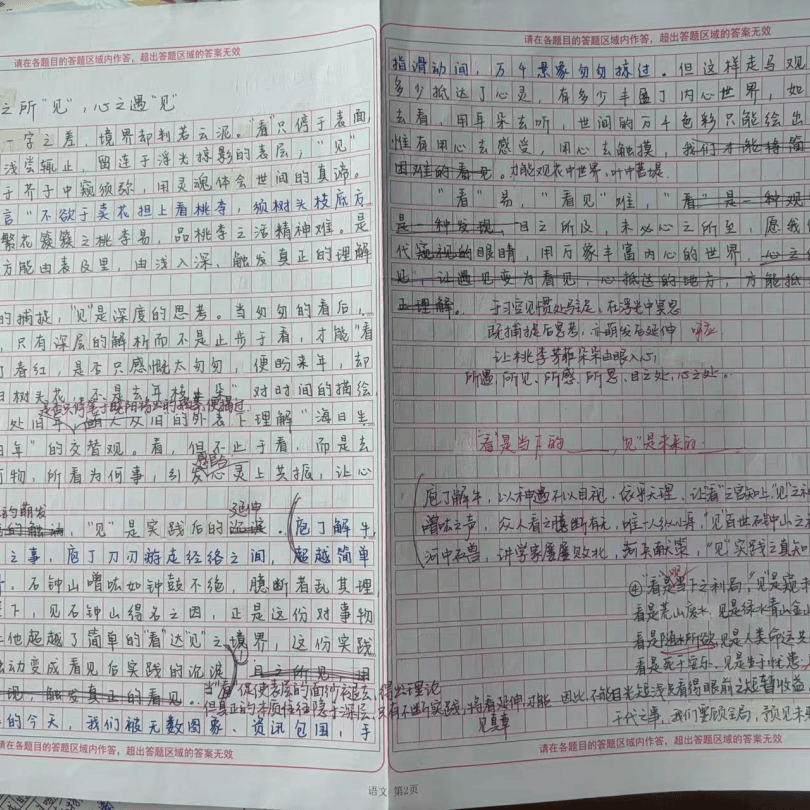 请在各题目的答题区域内作答，超出答题区域的答案无效
之所“见”，心之遇“见”
一字之差，境界却判若云泥。“看”只停于表面，
浅尝辄止，留连于浮光掠影的表层，“见”
于芥子中窥须弥，用灵魂体会世间的真谛。
言“不欲于卖花担上看桃李，须树头枝底方
繁花簇簇之桃李易，品桃李之活精神难。是
方能由表及里，由浅入深，触发真正的理解
的捕捉，“见”是深度的思考。当匆匆的看后，
，只有深层的解析而不是止步于看，才能“看
了春红，是否只感慨太匆匆，便盼来年，却
日树头花，不是去年枝上朵”对时间的描绘
处旧年
的外表下理解“海日生
旧年”的交替观。看，但不止于看，而是去
物，所看为何事，引发心灵上共振，让心
的萌发
延伸
，“见”是实践后的沉淀。庖丁解牛，
之事，庖丁刀刃游走经络之间，超越简单
，石钟山噌吰如钟鼓不绝，臆断者乱其理
下，见石钟山得名之因，正是这份对事物
让他超越了简单的“看”达“见”之境界，这份实践
动变成看见后实践的沉淀。目之所见，用
现，触发真正的看见。
的今天，我们被无数图象、资讯包围，手
请在各题目的答题区域内作答，超出答题区域的答案无效
语文 第2页
请在各题目的答题区域内作答，超出答题区域的答案无效
指滑动间，万千景象匆匆掠过。但这样走马观
多少抵达了心灵，有多少丰盈了内心世界，如
去看，用耳朵去听，世间的万千色彩只能绘出
唯有用心去感受，用心去触摸，我们才能将简
困难的看见。才能观花中世界，叶中菩提
“看”易，“看见”难，“看”是一种观
是一种发现，目之所及，未必心之所至，愿我
代窥视的眼睛，用万象丰富内心的世界，心之
见”，让遇见变为看见，心抵达的地方，方能抵
正理解。于习空见惯处驻足，在浮光中冥思
既捕捉后思考，亦萌发后延伸 呼应
让桃李芳菲朵朵由眼入心，
所遇，所见、所感、所思、目之处，心之处。
“看”是当下的______，“见”是未来的______
庖丁解牛，以神遇不以目视，依乎天理，让“看”之官知止，“见”之
噌吰之声，众人看之臆断有无，唯
“见”百世石钟山之
河中石兽，讲学家屡屡败北，
献策，“见”实践之真知
④“看”是当下之利局，“见”是窥未
看是荒山废水，见是绿水青山金山
看是随心所欲，见是人类命运共
看是死于安乐，见是生于忧患
因此，不能目光短浅只看得眼前之短暂收益
千代之事，我们要顾全局，预见未
请在各题目的答题区域内作答，超出答题区域的答案无效